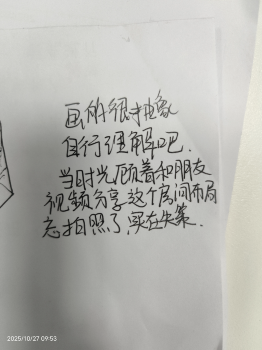 画的很抽象
自行理解吧.
当时光顾着和朋友
视频分享这个房间布局
忘拍照了,实在失策.
2025/10/27 09:53